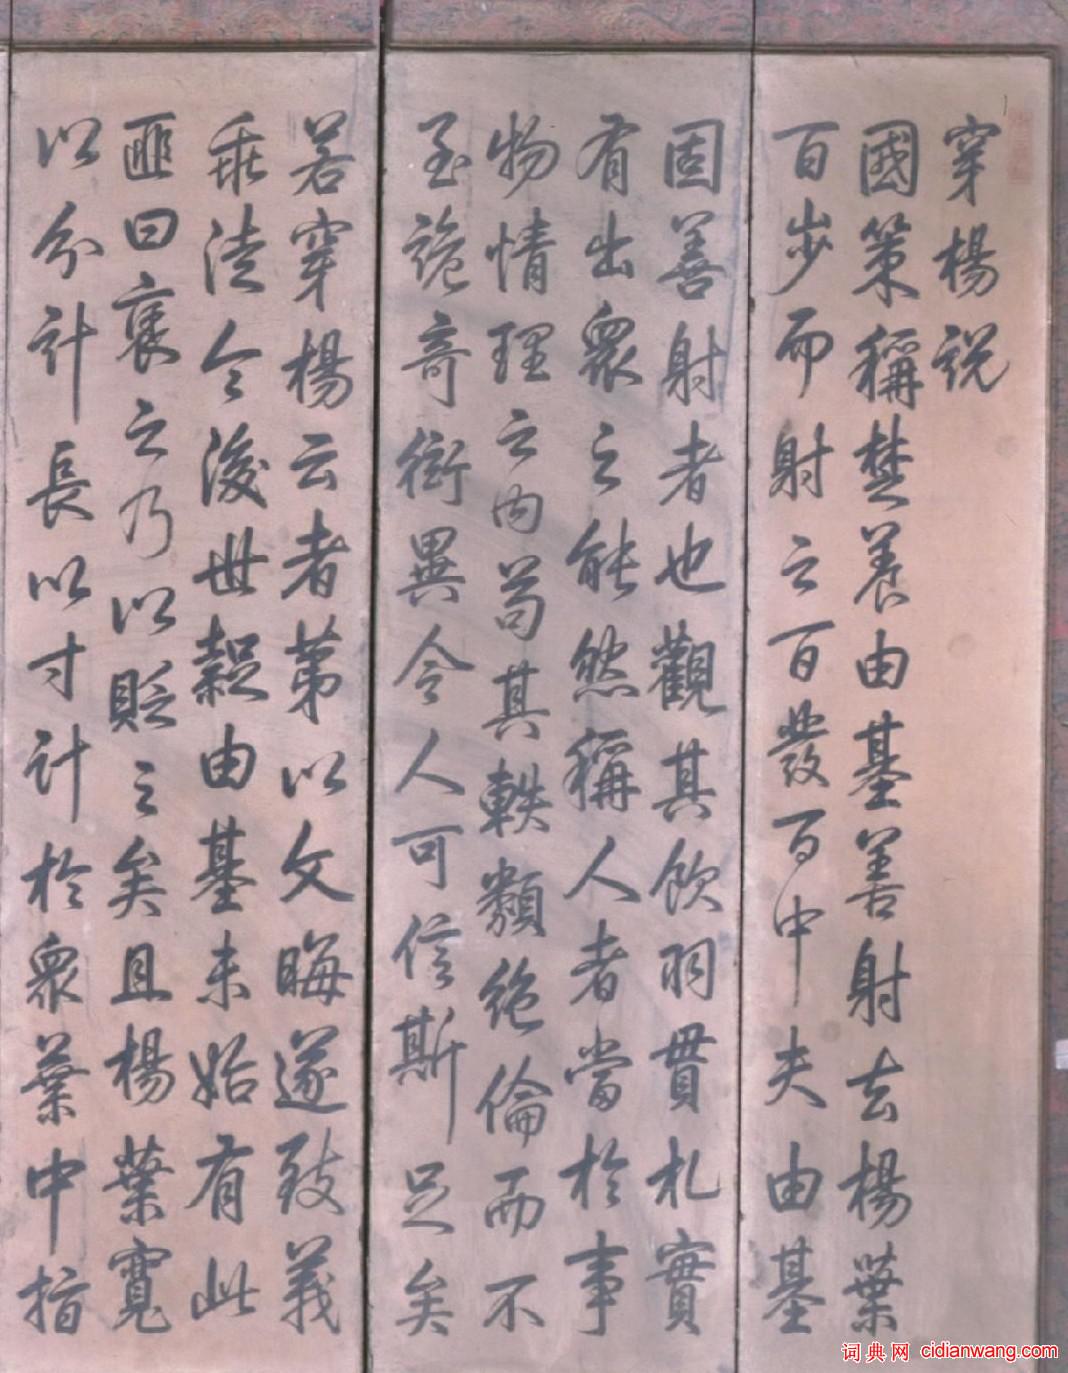 穿楊説
國策稱楚養由基善射去楊葉
百步而射之百發百中夫由基
固善射者也觀其飲羽貫札實
有出衆之能然稱人者當於事
物情理之内苟其軼類絶倫而不
至詭奇衒異令人可信斯足矣
若穿楊云者第以文晦遂致義
乖法令後世疑由基未始有此
匪曰襃之乃以貶之矣且楊葉寬
以分計長以寸計於衆葉中指
词典网 cidianwang.com